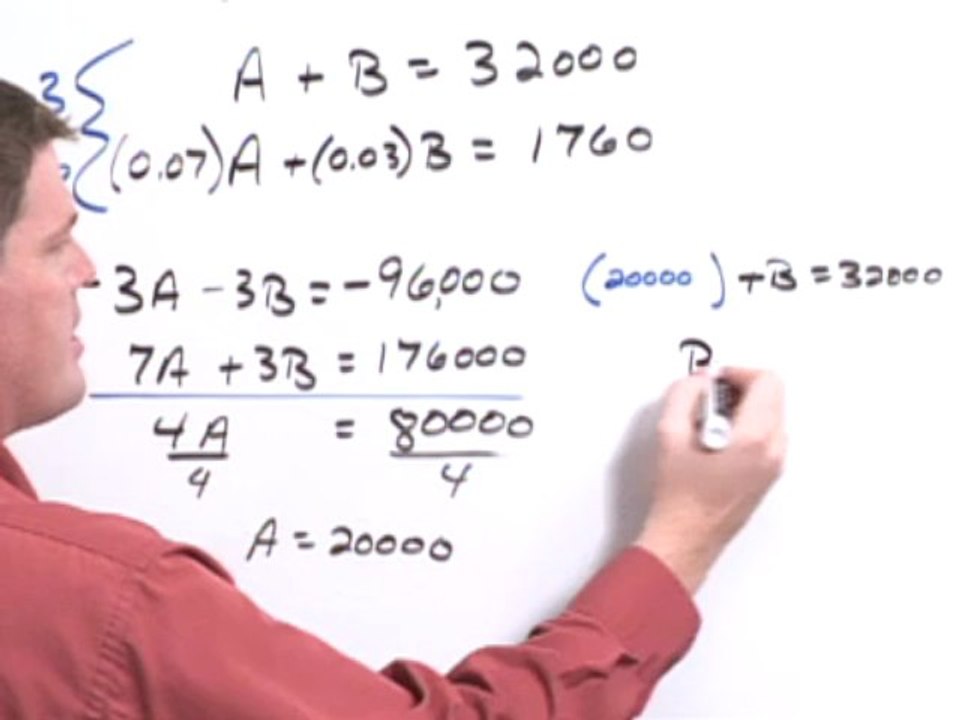 A + B = 32000
(0.07)A + (0.03)B = 1760
-3A - 3B = -96,000
7A + 3B = 176000
4A = 80000
4 4
A = 20000
(20000) + B = 32000
B
3